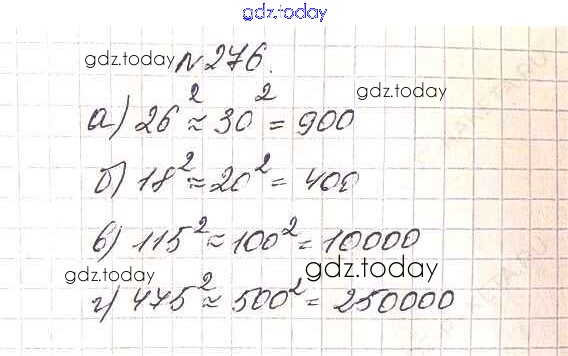 gdz.today
gdz.today №276.
gdz.today
а) 26² ≈ 30² = 900
б) 18² ≈ 20² = 400
в) 115² ≈ 100² = 10000
gdz.today
gdz.today
г) 475² ≈ 500² = 250000